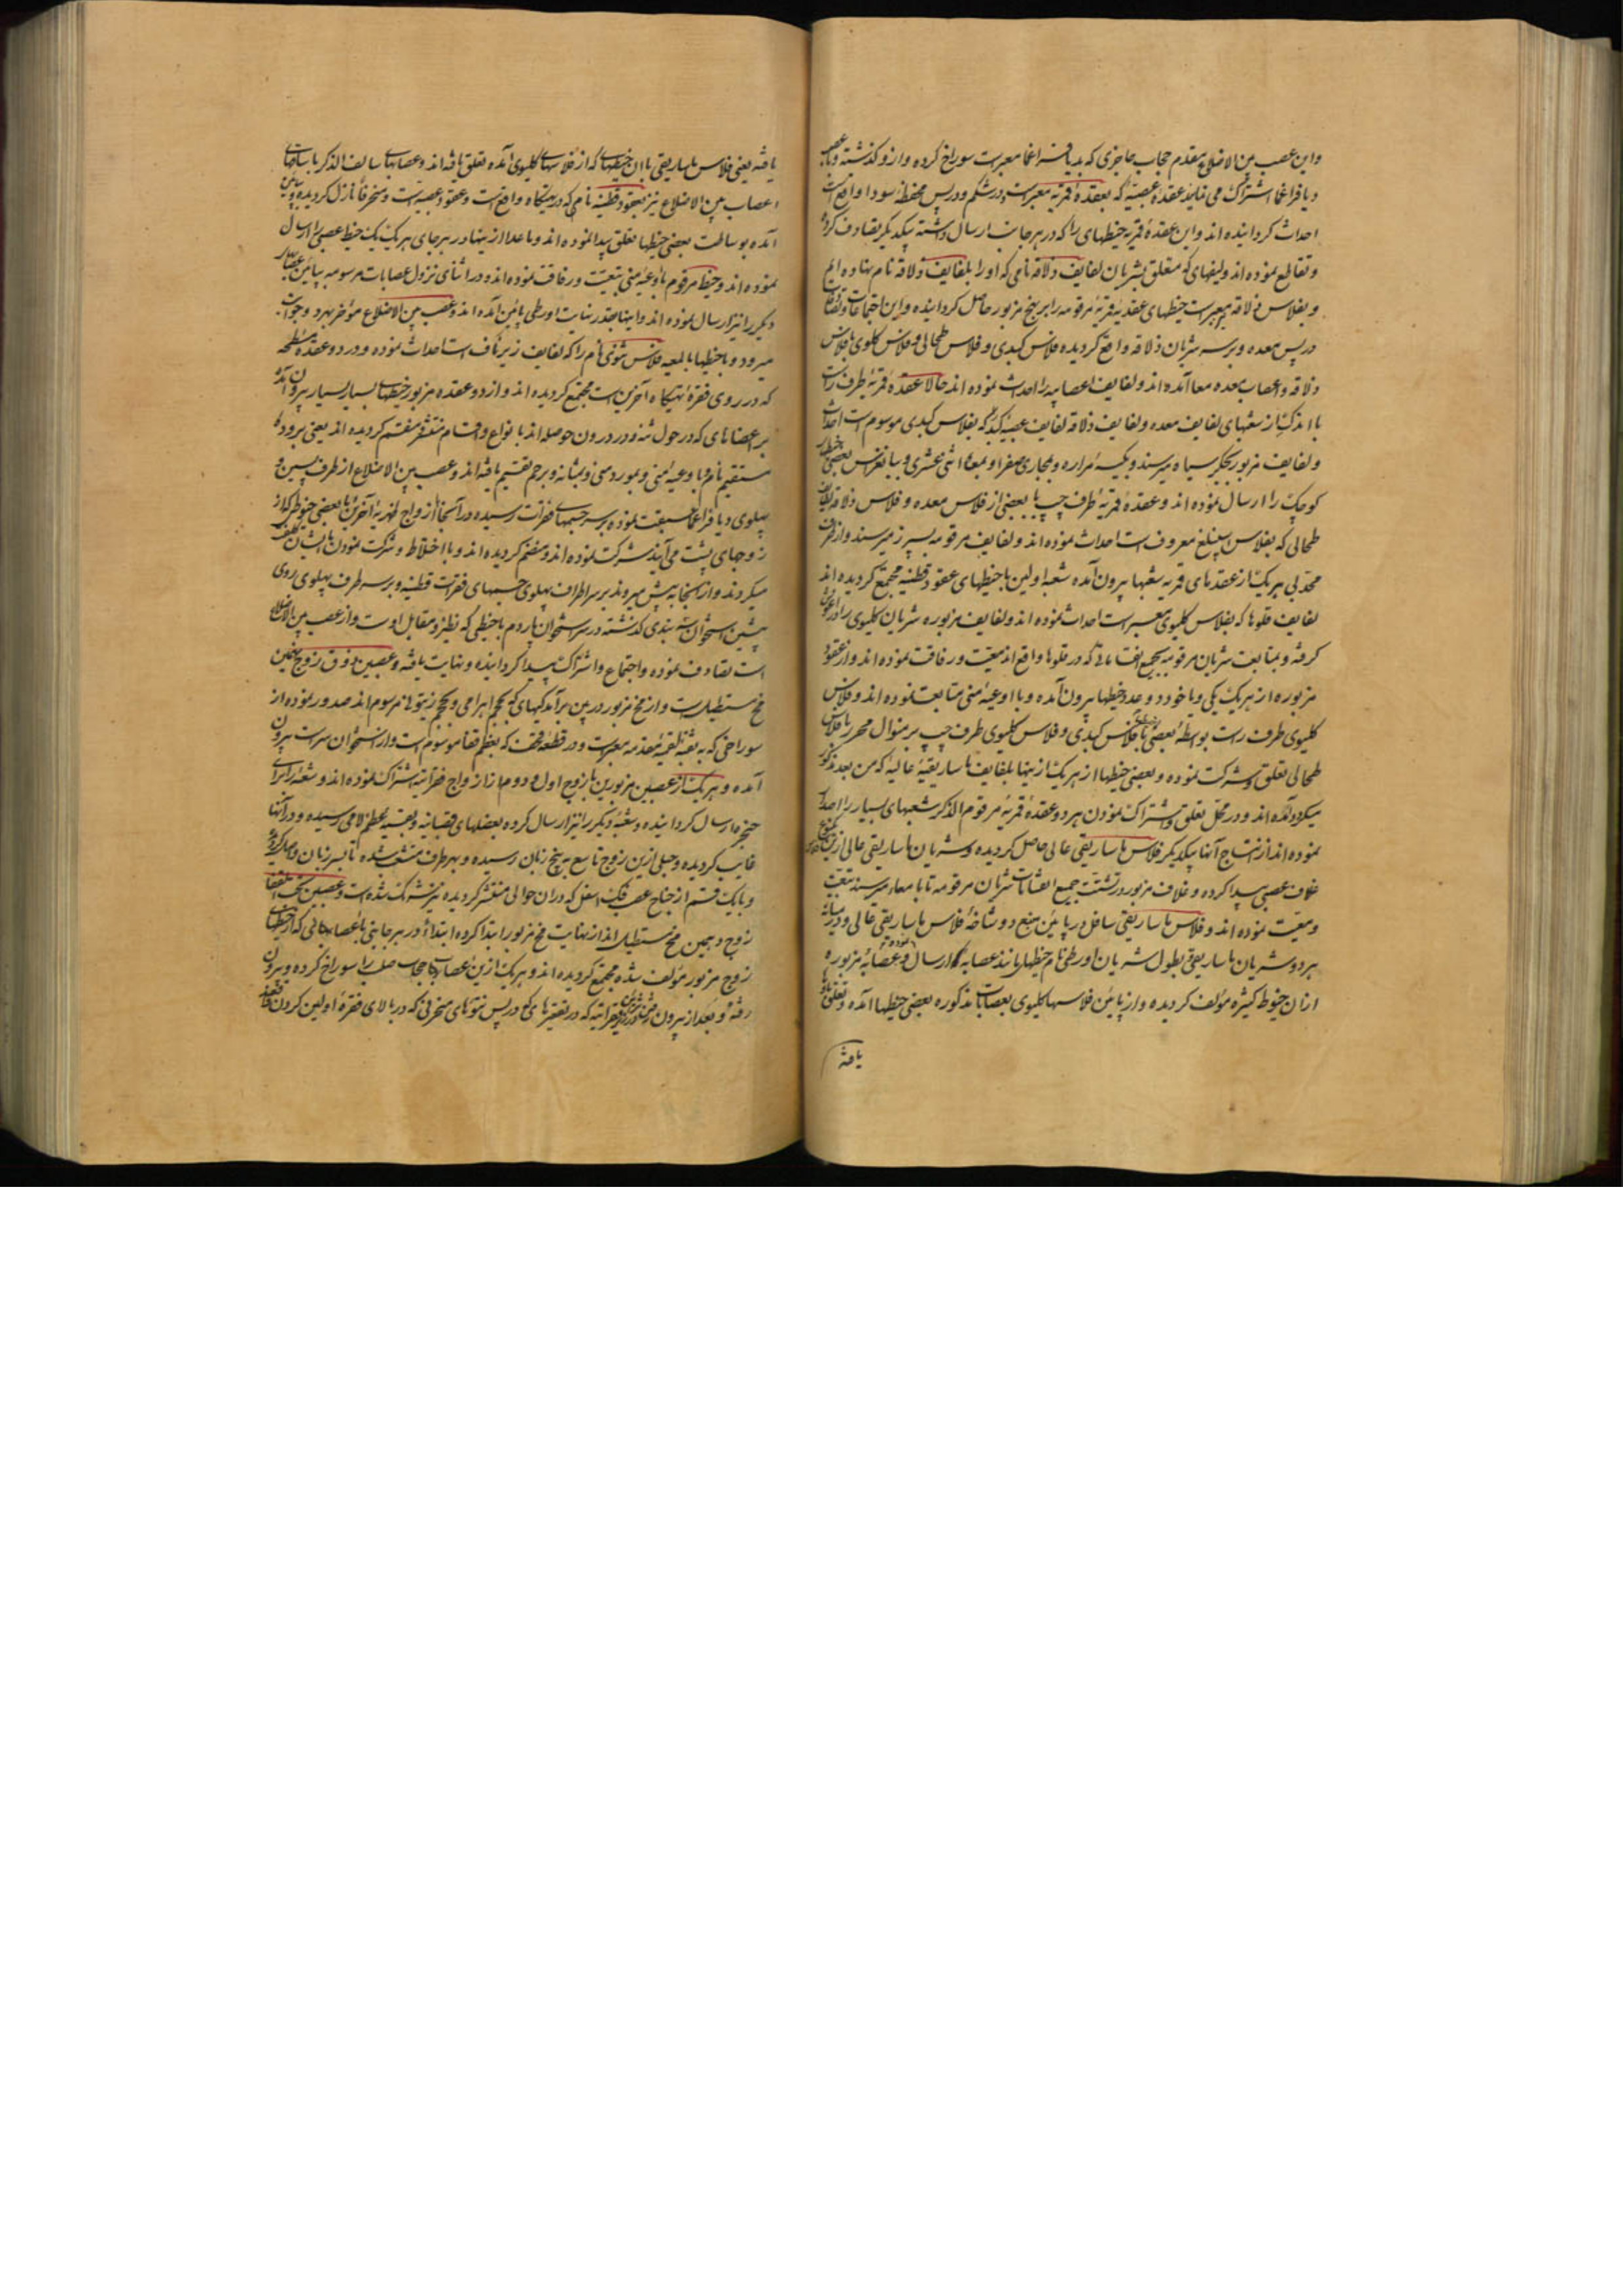 واین عصب بین الاضلاع مقدم حجاب حاجزی که بدیافراغما معبرست سوراخ کرده و ازو کذشته و با عصب
دیافراغما اشتراک می نماید عقدهٔ عصبیه که بعقدهٔ قمریه معبرست در شکم و در پس محفظهٔ سودا واقع است
احداث کردانیده اند و این عقدهٔ قمریه خیطهای را که در هر جانب ارسال داشته بیکدیکر تصادف کرده
و تقاطع نموده اند ولیفهای که متعلق بشریان لفایف ذلاقه نامی که او را بلفایف ذلاقه نام نهاده ایم
و بفلاس ذلاقه معبرست خیطهای عقدیه قمریهٔ مرقومه را بر نهج مزبور حاصل کردانیده و این اجتماعات
در پس معده و بر سر شریان ذلاقه واقع کردیده فلاس کبدی و فلاس طحالی و فلاس کلیوی با فلاس
ذلاقه و اعصاب معده معا آمده اند و لفایف اعصابیه را احداث نموده اند حالا عقدهٔ قمریهٔ طرف راست
با اندک از شعبهای لفایف معده و لفایف ذلاقه لفایف عصبیه کبدی که بفلاس کبدی موسوم است احداث
و لفایف مزبور بجکر سیاه میرسند و بکیسهٔ مراره و بمجاری صفرا و بمعاء اثنی عشری و ببانقراس بعضی خیطهای
کوچک را ارسال نموده اند و عقدهٔ قمریهٔ طرف چپ با بعضی از فلاس معده و فلاس ذلاقه لفایف
طحالی که بفلاس اسپلنغ معروف است احداث نموده اند و لفایف مرقومه بسپرز میرسند و از طرف
محدبی هر یک از عقدهای قمریه شعبها بیرون آمده شعبهٔ اولین با خیطهای عقود قطنیه مجتمع کردیده اند
لفایف قلوها که بفلاس کلیوی معبر است احداث نموده اند و لفایف مزبوره شریان کلیوی را در آغوش
کرفته و بمتابعت شریان مرقومه بجمیع انشعاباتی که در قلوها واقع اند معیت و رفاقت نموده اند و از عقود
مزبوره از هر یک یکی و یا خود دو عدد خیطها بیرون آمده و با اوعیهٔ منی متابعت نموده اند و فلاس
کلیوی طرف راست بواسطهٔ بعضی با فلاس کبدی و فلاس کلیوی طرف چپ بر منوال محرر با فلاس
طحالی تعلق و شرکت نموده و بعضی خیطها از هر یک از ینها بلفایف ماساریقیهٔ عالیه که من بعد مذکور
میکردد آمده اند و در محل تعلق و اشتراک نمودن هر دو عقدهٔ قمریهٔ مرقوم الذکر شعبهای بسیار را احداث
نموده اند از امتزاج آنها بیکدیکر فلاس ماساریقی عالی حاصل کردیده و شریان ماساریقی عالی ازین
غلاف عصبی پیدا کرده و غلاف مزبور در تشتت جمیع انشعابات شریان مرقومه تا بامعاء میرسند تبعیت
و معیت نموده اند و فلاس ماساریقی سافل در پایین منبع دو شاخهٔ فلاس ماساریقی عالی و در میانهٔ
هر دو شریان ماساریقی بطول شریان اورطی نام خیطها مانند عصابه ارسال نموده و عصابهٔ مزبوره
ازان خیوط کثیره مؤلف کردیده و از پایین فلاسهای کلیوی بعصابات مذکوره بعضی خیطها آمده و تعلق
یافته
یافته یعنی فلاس ماساریقی با ان خیطهای که از فلاسهای کلیوی آمده تعلق یافته اند و عصابهای سالف الذکر با ساقهای
اعصاب بین الاضلاع نیز بعقود قطنیه نامی که در تهیکاه واقع است و عقود عصبیه است و منحرفاً نازل کردیده
آمده بوساطت بعضی خیطها تعلق پیدا نموده اند و ماعدا از ینها در هر جای هر یک یک خیط عصبی را ارسال
نموده اند و خیط مرقوم باوعیهٔ منی تبعیت و رفاقت نموده اند و در اثنای نزول عصابات مرسومه بپایین
دیکر را نیز ارسال نموده اند و اینها بعد از نهایت اورطی پایین آمده اند و عصب بین الاضلاع مؤخر بهر دو جوانب
میرود و با خیطها بالمعیه فلاس نثوئی نام را که لفایف زیر ناف است احداث نموده و در دو عقدهٔ مسطحه
که در روی فقرهٔ تهیکاه آخرین است مجتمع کردیده اند و از دو عقده مزبور خیطهای بسیار بسیار بیرون آمده
بر اعضاهای که در حول شه و در درون حوصله اند بانواع و اقسام منتشر و منقسم کردیده اند یعنی برودهٔ
مستقیم نام و با وعیهٔ منی و بمورد منی و بمثانه و برحم تقسیم یافته اند و عصب بین الاضلاع از طرف پسین و
پهلوی دیافراغما سبقت نموده بر سر جسمهای فقرات رسیده در آنجا از ازواج ظهریهٔ آخرین با بعضی خیوط که از
زوجهای پشت می آیند شرکت نموده اند و منضم کردیده اند و با اختلاط و شرکت نمودن با ایشان
میکردند و از آنجا به پیش میروند بر سر اطراف پهلوی جسمهای فقرات قطنیه و بر سر طرف پهلوی روی
پیشین استخوان نشه بندی کذشته در سر استخوان باردم با خیطی که نظیر و مقابل اوست و از عصب بین الاضلاع
است تصادف نموده و اجتماع و اشتراک پیدا کردانیده و نهایت یافته و عصبین ذوق زوج نهمین
مخ مستطیل است و از مخ مزبور در بین برآمدکیهای که بحجم اهرامی و بحجم زیتونانه مرسوم اند صدور نموده از
سوراخی که به ثقبهٔ لقمیهٔ مقدمه معبرست و در قطعهٔ قحف که بعظم قفا موسوم است و از استخوان سر است بیرون
آمده و هر یک از عصبین مزبورین با زوج اول و دوم از ازواج فقراتیه اشتراک نموده اند و شعبه را برای
حنجره ارسال کردانیده و شعبهٔ دیکر را نیز ارسال کرده بعضلهای قصبانیه و بقسبهٔ عظم لامی رسیده و در آنها
غایب کردیده و حبلی ازین زوج تاسع به بیخ زبان رسیده و بهر طرف منشعب شده تا بسر زبان واصل کردیده
و با یک قسم از جناح عصب فک اسفل که دران حوالی منتشر کردیده نیز مشترک شده است و عصبین تحت القفا
زوج دهمین مخ مستطیل اند از نهایت مخ مزبور ابتدا کرده ابتداءً در هر جانبی با عصابهٔ جانبی که از خیطهای
زوج مزبور مؤلف شده مجتمع کردیده اند و هر یک ازین اعصاب حجاب صلب را سوراخ کرده و بیرون
رفته و بعد از بیرون رفتن شریان فقراتیه که در تقعیرهای که در پس نتوهای منحرفی که در بالای فقرهٔ اولین کردن